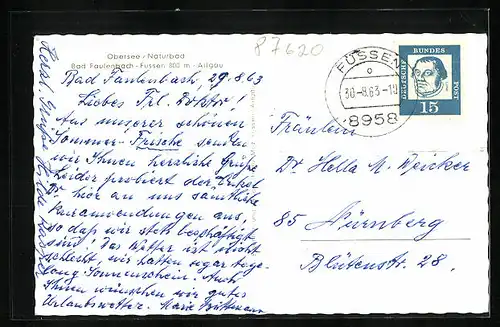 Obersee / Naturbad
Bad Faulenbach - Füssen 800 m - Allgäu
87620
Bad Faulenbach, 29.8.63
Liebes Frl. Doktor!
Aus unserer schönen
Sommer-Frische senden
wir Ihnen herzliche Grüße
Leider probiert der
Dr hier an uns sämtliche
Kuranwendungen aus,
so daß wir stets beschäftigt
sind! Das Wetter ist nicht
schlecht, wir hatten sogar tage-
lang Sonnenschein. Auch
Ihnen wünschen wir gutes
Urlaubswetter. Marie
Herzl. Grüße
FÜSSEN
30.-8.63-18
8958
DEUTSCHE BUNDES POST
15
Fräulein
Dr. Hella M.
85 Nürnberg
Blütenstr. 28,